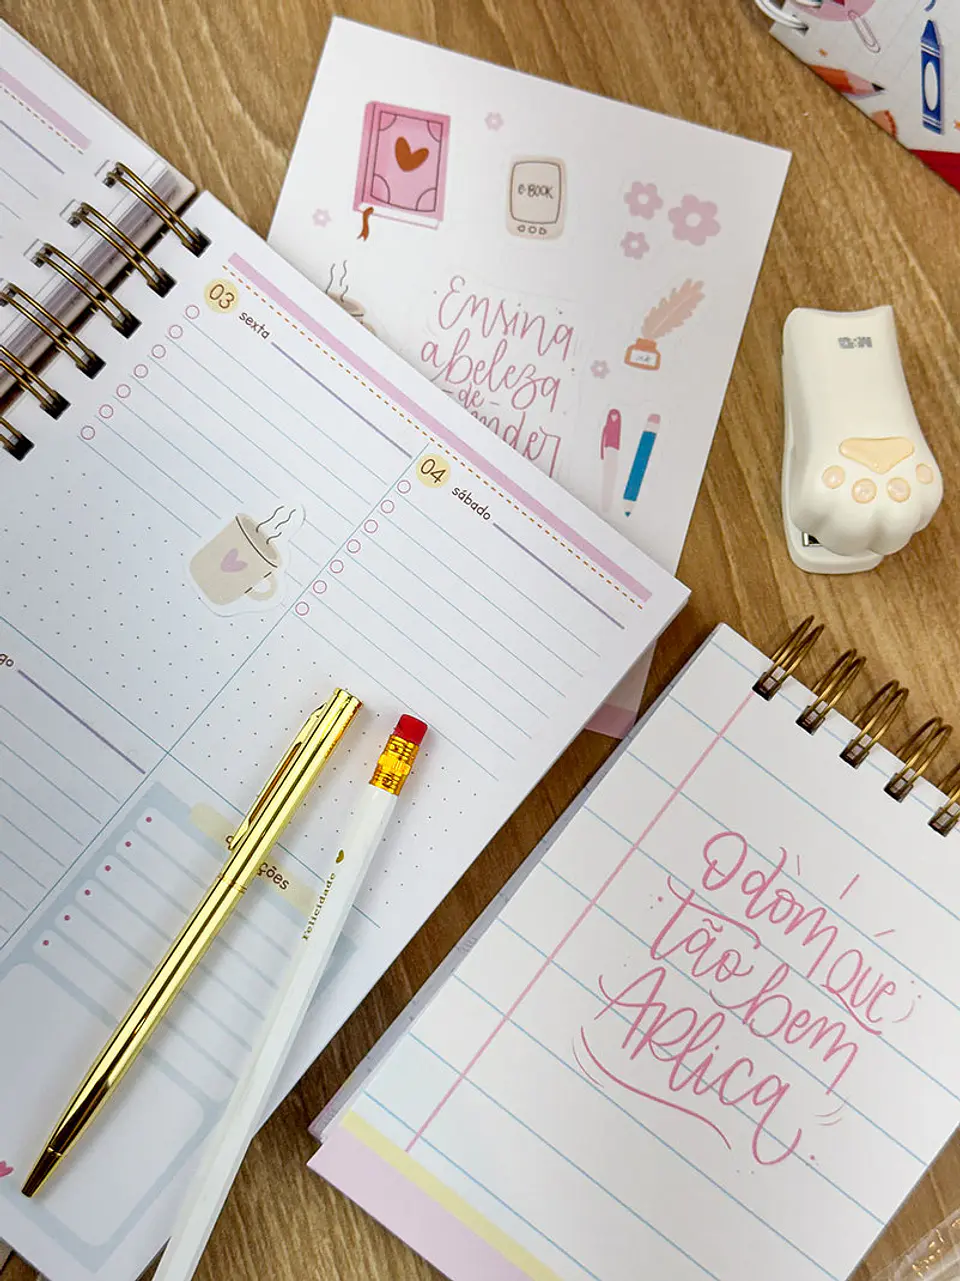 e-BOOK
Ensina
a beleza
-de-
03
sexta
04
sábado
Felicidade
O dom
que
tão bem
Aplica